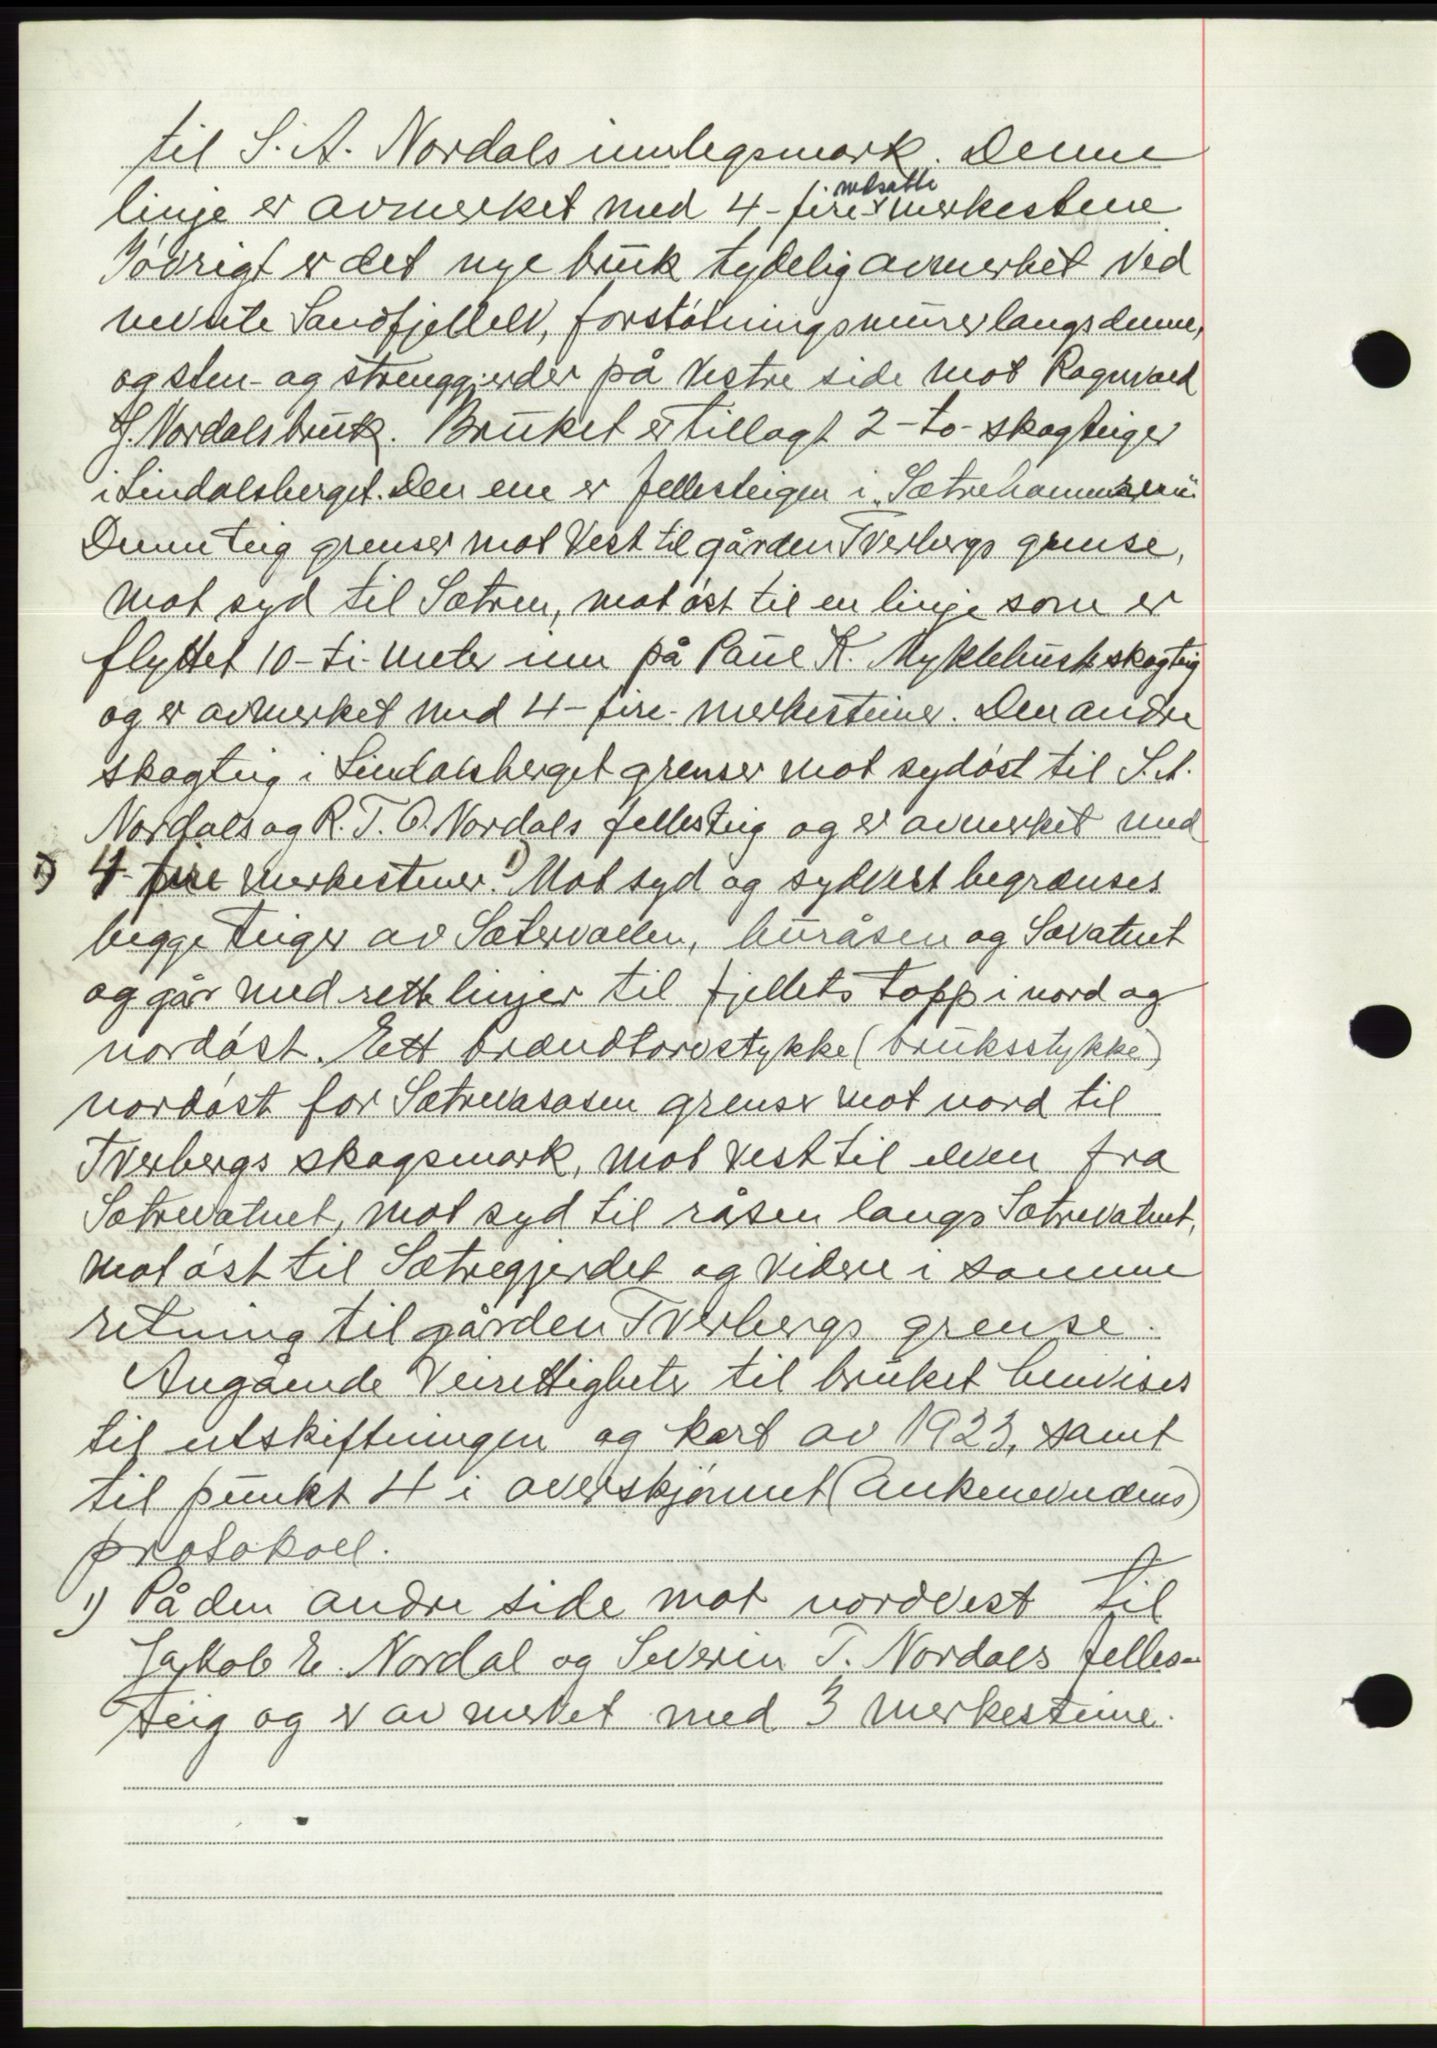 til S. A. Nordals innlegsmark. Denne
linje er avmerket med 4-fire- nedsatte merkestene
Jóvrigt er det nye bruk tydelig avmerket ved
nevnte Sandfjellelv, forstótningsmurer langs denne,
og sten- og strenggjerder på vestre side mot Ragnvald
J. Nordals bruk. Bruket er tillagt 2-to- skogteiger
i Lindalsberget. Den ene er fellesteigen i "Sætrehammaren"
Denne teig grenser mot Vest til gården Tverbergs grense,
mot syd til Sætren, mot óst til en linje som er
flyttet 10-ti-meter inn på Paul K. Myklebusts skogteig
og er avmerket med 4-fire-merkesteiner. Den andre
skogteig i Lindalsberget grenser mot sydóst til S. A.
Nordals og R. T. O. Nordals fellesteig og er avmerket med
1) 4-fire merkestener. 1) Mot syd og sydvest begrænses
begge teiger av Sætervallen, buråsen og Sævatnet
og går med rette linjer til fjellets topp i nord og
nordóst. Ett brændtorvstykke (bruksstykke)
nordóst for Sætrevasosen grenser mot nord til
Tverbergs skogsmark, mot vest til elven fra
Sætrevatnet, mot syd til råsen langs Sætrevatnet,
mot óst til Sætregjerdet og videre i samme
retning til gården Tverbergs grense.
Angående Veirettigheter til bruket henvises
til utskiftningen og kart av 1923, samt
til punkt 4 i overskjónnet (ankenevndens)
protokoll.
1) På den andre side mot nordvest til
Jakob E. Nordal og Severin T. Nordals felles-
teig og er avmerket med 3 merkesteine.